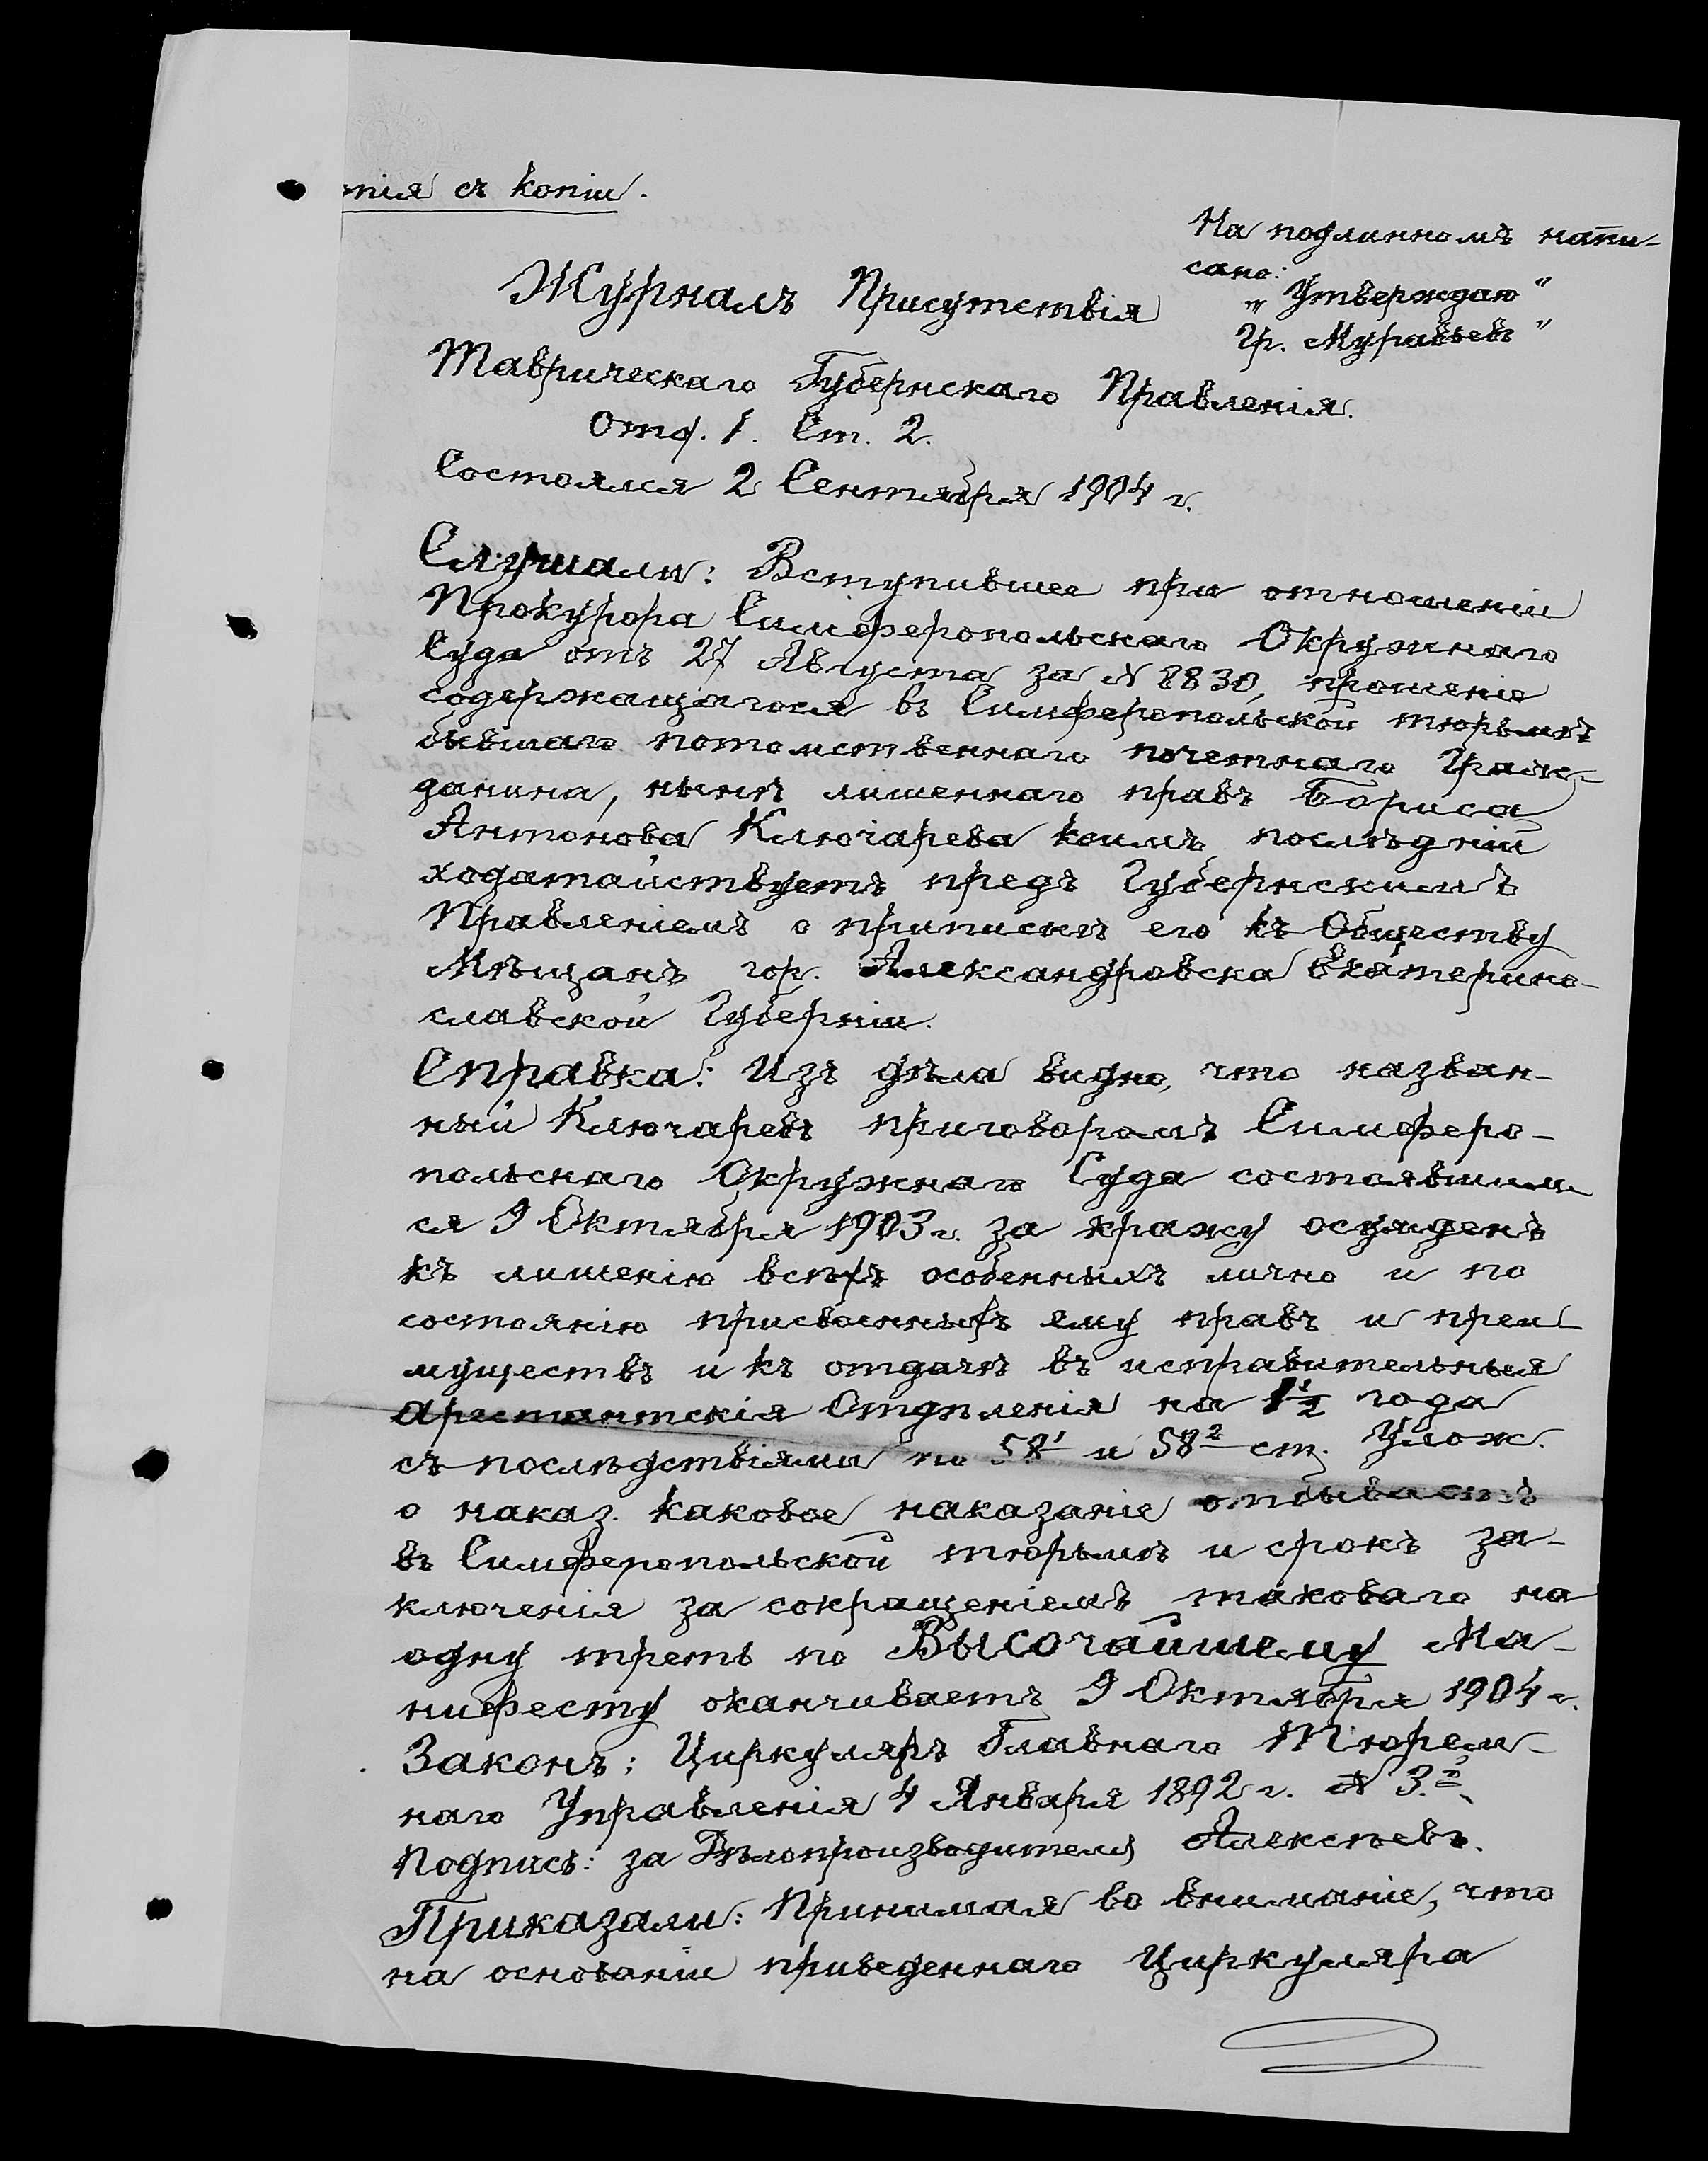 опія съ копіи.
На подлинномъ напи-
сано:
„Утверждаю"
Гр. Муравьевъ"
Журналъ Присутствія
Таврическаго Губернскаго Правленія.
Отд. 1. Ст. 2.
Состоялся 2 Сентября 1904 г.
Слушали: Вступившее при отношеніи
Прокурора Симферопольскаго Окружнаго
Суда отъ 27 Августа за № 8830, прошеніе
содержащагося въ Симферопольской тюрьмѣ
бывшаго потомственнаго почетнаго Граж-
данина, нынѣ лишеннаго правъ Бориса
Антонова Ключарева коимъ послѣдній
ходатайствуетъ предъ Губернскимъ
Правленіемъ о припискѣ его къ Обществу
Мѣщанъ гор. Александровска Екатерино-
славской Губерніи.
Справка: Изъ дѣла видно, что назван-
ный Ключаревъ приговоромъ Симферо-
польскаго Окружнаго Суда состоявшим-
ся 9 Октября 1903 г. за кражу осужденъ
къ лишенію всѣхъ особенныхъ лично и по
состоянію присвоенныхъ ему правъ и преи-
муществъ и къ отдачѣ въ исправительныя
Арестантскія Отдѣленія на 1½ года
съ послѣдствіями по 58¹ и 58² ст. Улож.
о наказ. каковое наказаніе отбываетъ
въ Симферопольской тюрьмѣ и срокъ за-
ключенія за сокращеніемъ таковаго на
одну треть по Высочайшему Ма-
нифесту оканчиваетъ 9 Октября 1904 г.
Законъ: Циркуляръ Главнаго Тюрем-
наго Управленія 4 Января 1892 г. № 3.
Подпись: за Дѣлопроизводителя Алексѣевъ.
Приказали: Принимая во вниманіе, что
на основаніи приведеннаго Циркуляра